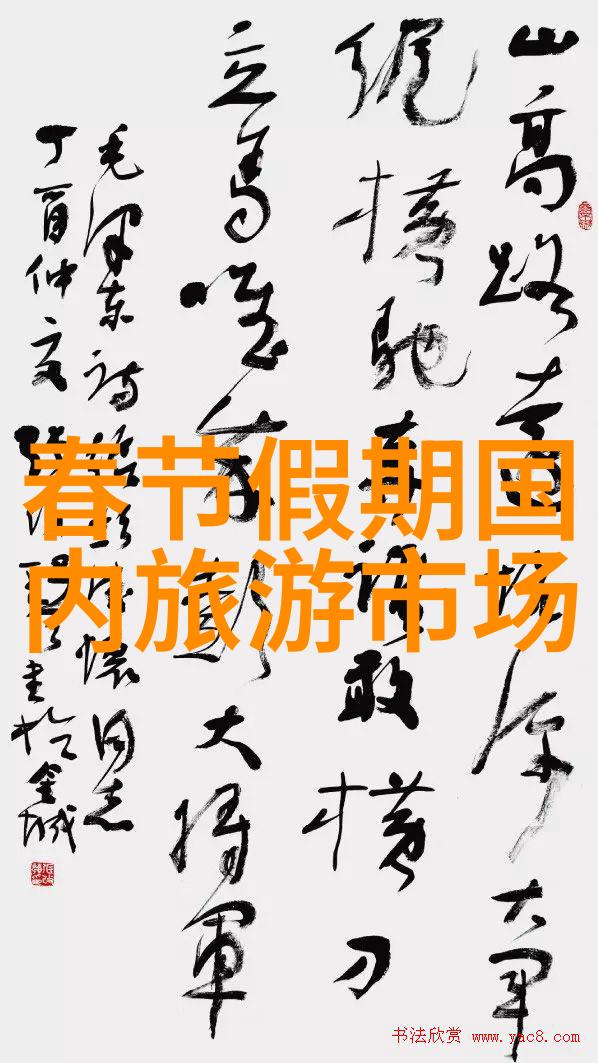 山高路遠坑深大军
縱横驰奔谁敢横刀
立馬唯我彭大将軍
毛泽东诗懷同志
丁酉仲夏书於金城
春节假期国
内旅游市场
书法欣赏 www.yac8.com